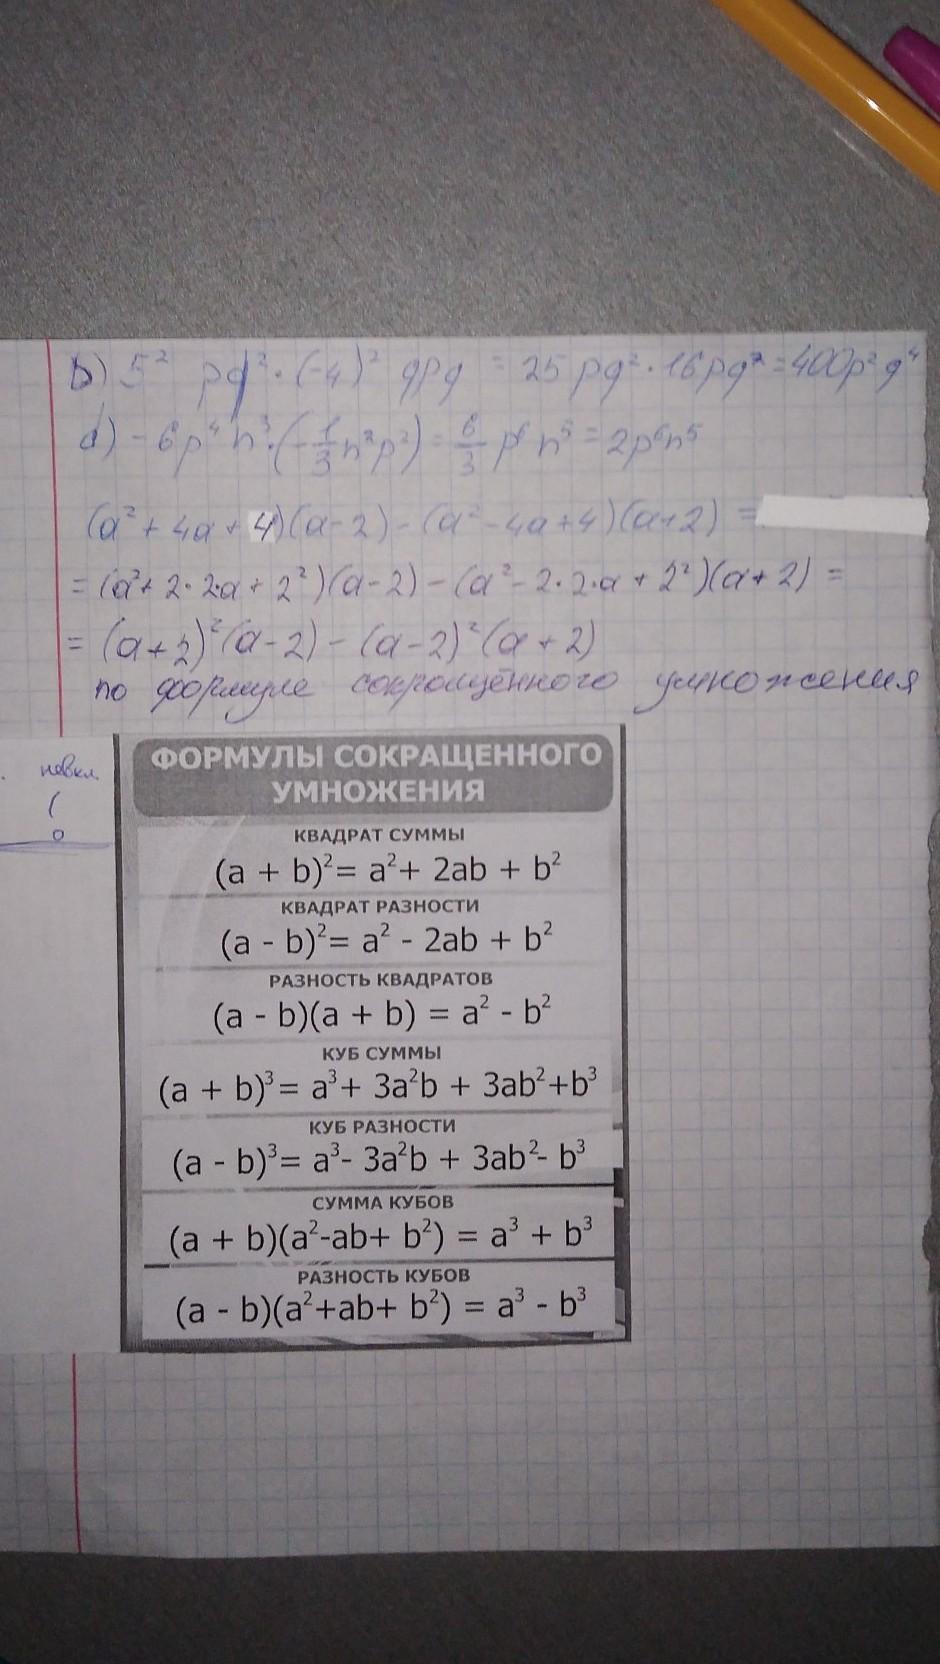 b) 5² pq²·(-4)² qpq = 25 pq²·16pq² = 400p²q⁴
d) -6p⁴n³·(-1/3n²p²) = 6/3 p⁶n⁵ = 2p⁶n⁵
(a² + 4a + 4)(a-2) - (a² - 4a + 4)(a+2) =
= (a² + 2·2·a + 2²)(a-2) - (a² - 2·2·a + 2²)(a+2) =
= (a+2)²(a-2) - (a-2)²(a+2)
по формуле сокращённого умножения
ФОРМУЛЫ СОКРАЩЕННОГО
УМНОЖЕНИЯ
КВАДРАТ СУММЫ
(a + b)²= a²+ 2ab + b²
КВАДРАТ РАЗНОСТИ
(a - b)²= a² - 2ab + b²
РАЗНОСТЬ КВАДРАТОВ
(a - b)(a + b) = a² - b²
КУБ СУММЫ
(a + b)³= a³+ 3a²b + 3ab²+b³
КУБ РАЗНОСТИ
(a - b)³= a³- 3a²b + 3ab²- b³
СУММА КУБОВ
(a + b)(a²-ab+ b²) = a³ + b³
РАЗНОСТЬ КУБОВ
(a - b)(a²+ab+ b²) = a³ - b³